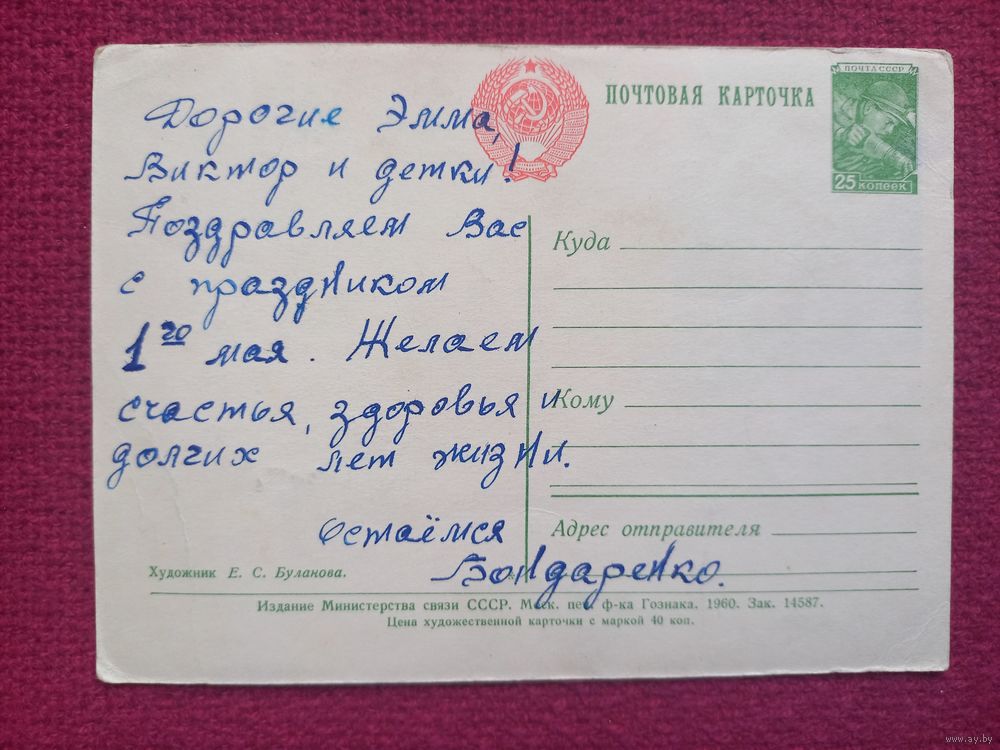 ПОЧТА СССР
25 КОПЕЕК
ПОЧТОВАЯ КАРТОЧКА
Дорогие Эмма,
Виктор и детки!
Поздравляем Вас
с праздником
1го мая. Желаем
счастья, здоровья и
долгих лет жизни.
Остаёмся
Бондаренко.
Куда
Кому
Адрес отправителя
Художник Е. С. Буланова.
Издание Министерства связи СССР. Моск. печ. ф-ка Гознака. 1960. Зак. 14587.
Цена художественной карточки с маркой 40 коп.
www.ay.by